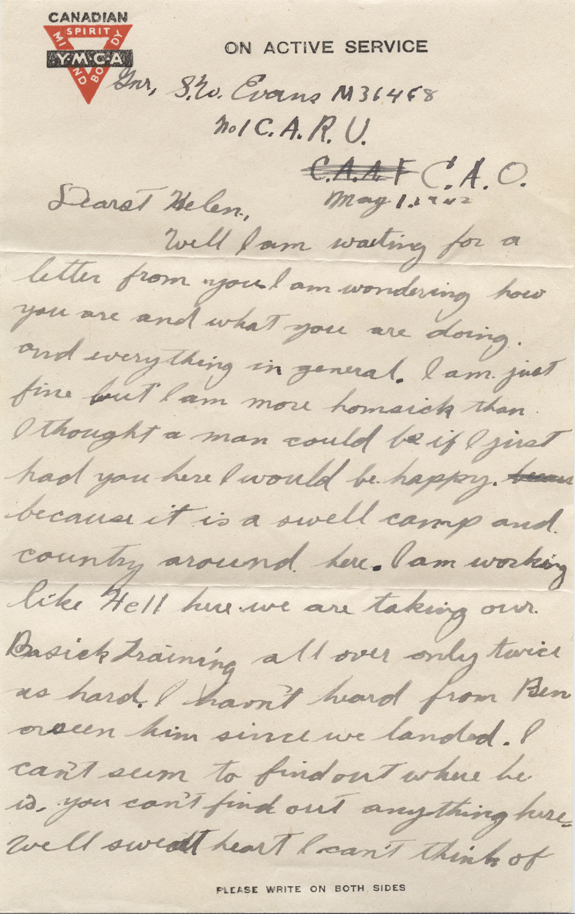 CANADIAN
SPIRIT
MIND BODY
Y·M·C·A
ON ACTIVE SERVICE
Gnr, S.W. Evans M36468
No1 C.A.R.U.
C.A.A.F C.A.O.
May 1. 1942
Dearst Helen,
Well I am waiting for a
letter from you I am wondering how
you are and what you are doing.
and everything in general. I am just
fine but I am more homsick than
I thought a man could be if I just
had you here I would be happy.
because it is a swell camp and
country around here. I am working
like Hell here we are taking our
Basick Training all over only twice
as hard. I havn't heard from Ben
or seen him since we landed. I
can't seem to find out where he
is. you can't find out anything here.
Well sweat heart I can't think of
PLEASE WRITE ON BOTH SIDES